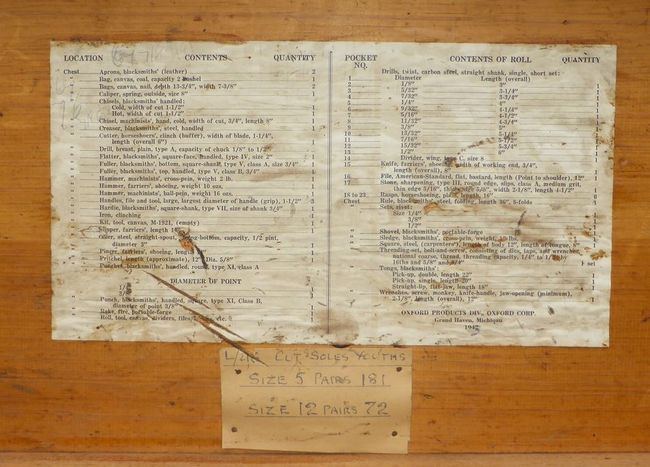 LOCATION CONTENTS QUANTITY
Chest Aprons, blacksmiths' (leather) 2
" Bag, canvas, coal, capacity 2 bushel 1
" Bags, canvas, nail, depth 13-3/4", width 7-3/8" 2
" Caliper, spring, outside, size 8" 1
Chisels, blacksmiths' handled:
" Cold, width of cut 1-1/2" 1
" Hot, width of cut 1-1/2" 1
" Chisel, machinists', hand, cold, width of cut, 3/4", length 8" 1
" Creaser, blacksmiths', steel, handled 1
" Cutter, horseshoers', clinch (buffer), width of blade, 1-1/4",
length (overall 6") 1
" Drill, breast, plain, type A, capacity of chuck 1/8" to 1/2" 1
" Flatter, blacksmiths', square-face, handled, type IV, size 2" 1
" Fuller, blacksmiths', bottom, square-shank, type V, class A, size 3/4" 1
" Fuller, blacksmiths', top, handled, type V, class B, 3/4" 1
" Hammer, machinists', cross-pein, weight 2 lb. 1
" Hammer, farriers', shoeing, weight 10 ozs. 1
" Hammer, machinists', ball-pein, weight 16 ozs. 1
" Handles, file and tool, large, largest diameter of handle (grip), 1-1/2" 3
" Hardie, blacksmiths', square-shank, type VII, size of shank 3/4" 1
" Iron, clinching 1
" Kit, tool, canvas, M-1921, (empty) 1
" Nipper, farriers', length
" Oiler, steel, straight-spout, bottom, capacity, 1/2 pint,
diameter 3"
" Pincer, farriers', shoeing, length
" Pritchel, length (approximate), 12" Dia. 5/8"
" Punches, blacksmiths', handled, round, type XI, class A
DIAMETER OF POINT
Punch, blacksmiths', handled, square, type XI, Class B,
diameter of point 3/8"
Rake, fire, portable-forge
Roll, tool, canvas,
POCKET NO. CONTENTS OF ROLL QUANTITY
Drills, twist, carbon steel, straight shank, single, short set:
Diameter Length (overall)
1 1/8" 3" 1
2 5/32" 3-1/4" 1
3 7/32" 3-3/4" 1
5 1/4" 4" 1
6 9/32" 4-1/4" 1
7 5/16" 4-1/2" 1
8 11/32" 4-3/4" 1
9 3/8" 5" 1
Divider, wing, type C, size 8
15 Knife, farriers', shoeing, width of working end, 3/4",
length (overall), 8"
16 File, American-Standard, flat, bastard, length (Point to shoulder), 12"
17 Stone, sharpening, type III, round edge, slips, class A, medium grit,
thin edge 5/16" thick edge 5/8", width 2-1/8", length 4-1/2"
18 to 23 Rasps, horseshoeing, plain, length 16"
Chest Rule, blacksmiths', steel, folding, length 36", 6-folds
Sets, rivet:
Size 1/4"
3/8"
1/2"
Shovel, blacksmiths', portable-forge
" Sledge, blacksmiths', cross-pein, weight 10 lbs.
" Square, steel, (carpenters'), length of body 12", length of tongue,
" Threading-set, bolt-and-screw, consisting of dies, taps, and wrenches,
national coarse, thread, threading capacity, 1/4" to 1" by
16ths and 5/8" and 3/4" 1 set
Tongs, blacksmiths':
" Pick-up, double, length 22"
" Pick-up, single, length 20"
" Straight-lip, flat-jaw, length 18"
" Wrenches, screw, monkey, knife-handle, jaw-opening (minimum),
2-1/8", length (overall), 12"
OXFORD PRODUCTS DIV., OXFORD CORP.
Grand Haven, Michigan
CUT SOLES YOUTHS
SIZE 5 PAIRS 181
SIZE 12 PAIRS 72